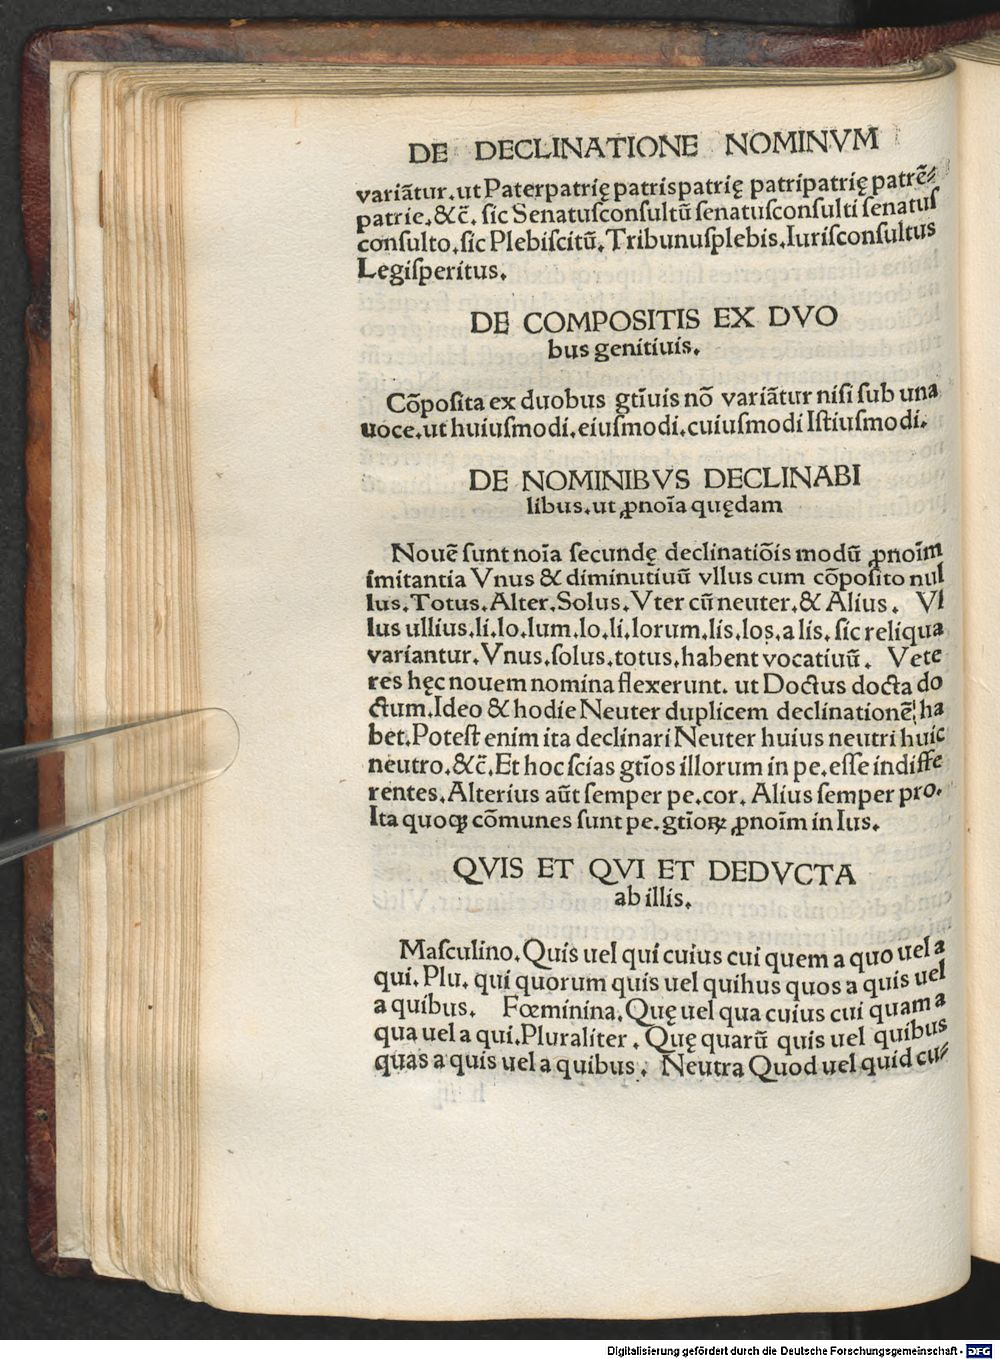 DE DECLINATIONE NOMINVM
variãtur.ut Paterpatrię patrispatrię patripatrię patrẽ⸗
patrie.&c̃. ſic Senatuſconſultũ ſenatuſconſulti ſenatuſ
conſulto.ſic Plebiſcitũ.Tribunuſplebis.Iurisconſultus
Legiſperitus.
DE COMPOSITIS EX DVO
bus genitiuis.
Cõpoſita ex duobus gtĩuis nõ variãtur niſi ſub una
uoce.ut huiuſmodi.eiuſmodi.cuiuſmodi Iſtiuſmodi.
DE NOMINIBVS DECLINABI
libus.ut ꝓnoĩa quędam
Nouẽ ſunt noĩa ſecundę declinatiõis modũ ꝓnoĩm
imitantia Vnus & diminutiuũ vllus cum cõpoſito nul
lus.Totus.Alter.Solus.Vter cũ neuter.& Alius. Vl
lus ullius.li.lo.lum.lo.li.lorum.lis.los.a lis. ſic reliqua
variantur.Vnus.ſolus.totus.habent vocatiuũ. Vete
res hęc nouem nomina flexerunt. ut Doctus docta do
ctum.Ideo & hodie Neuter duplicem declinationẽ ha
bet.Poteſt enim ita declinari Neuter huius neutri huic
neutro.&c̃.Et hoc ſcias gtĩos illorum in pe.eſſe indiffe
rentes.Alterius aũt ſemper pe.cor. Alius ſemper pro.
Ita quoqꝫ cõmunes ſunt pe.gtĩoꝝ ꝓnoĩm in Ius.
QVIS ET QVI ET DEDVCTA
ab illis.
Maſculino.Quis uel qui cuius cui quem a quo uel a
qui. Plu. qui quorum quis uel quihus quos a quis uel
a quibus. Fœminina.Quę uel qua cuius cui quam a
qua uel a qui.Pluraliter . Quę quarũ quis uel quibus
quas a quis uel a quibus. Neutra Quod uel quid cu⸗
Digitalisierung gefördert durch die Deutsche Forschungsgemeinschaft - DFG